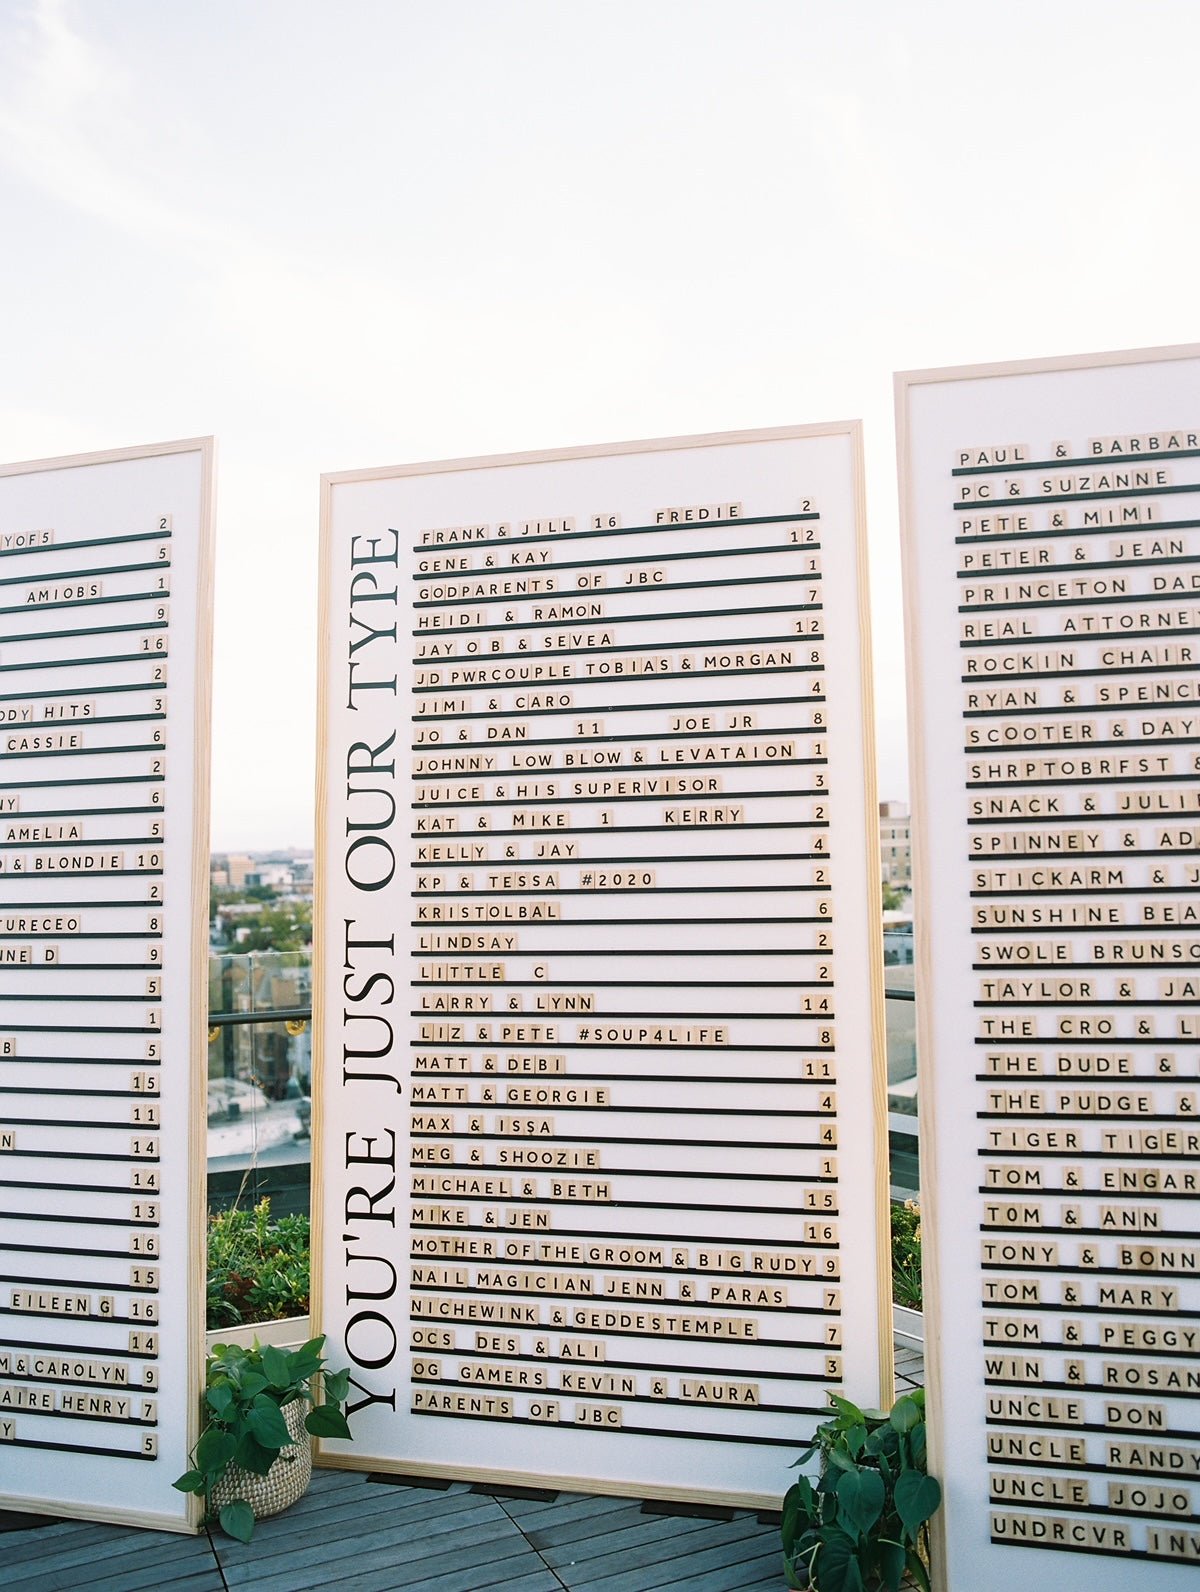 YOF5 2
5
AMIOBS 1
9
16
2
ODY HITS 3
CASSIE 6
2
NY 6
AMELIA 5
& BLONDIE 10
2
TURECEO 8
NNE D 9
5
1
B 5
15
11
N 14
14
13
16
15
EILEEN G 16
14
M & CAROLYN 9
AIRE HENRY 7
Y 5
YOU'RE JUST OUR TYPE
FRANK & JILL 16 FREDIE 2
GENE & KAY 12
GODPARENTS OF JBC 1
HEIDI & RAMON 7
JAY O B & SEVEA 12
JD PWRCOUPLE TOBIAS & MORGAN 8
JIMI & CARO 4
JO & DAN 11 JOE JR 8
JOHNNY LOW BLOW & LEVATAION 1
JUICE & HIS SUPERVISOR 3
KAT & MIKE 1 KERRY 2
KELLY & JAY 4
KP & TESSA #2020 2
KRISTOLBAL 6
LINDSAY 2
LITTLE C 2
LARRY & LYNN 14
LIZ & PETE #SOUP4LIFE 8
MATT & DEBI 11
MATT & GEORGIE 4
MAX & ISSA 4
MEG & SHOOZIE 1
MICHAEL & BETH 15
MIKE & JEN 16
MOTHER OF THE GROOM & BIG RUDY 9
NAIL MAGICIAN JENN & PARAS 7
NICHEWINK & GEDDESTEMPLE 7
OCS DES & ALI 3
OG GAMERS KEVIN & LAURA
PARENTS OF JBC
PAUL & BARBAR
PC & SUZANNE
PETE & MIMI
PETER & JEAN
PRINCETON DAD
REAL ATTORNE
ROCKIN CHAIR
RYAN & SPENC
SCOOTER & DAY
SHRPTOBRFST &
SNACK & JULI
SPINNEY & AD
STICKARM & J
SUNSHINE BEA
SWOLE BRUNSO
TAYLOR & JA
THE CRO & L
THE DUDE &
THE PUDGE &
TIGER TIGER
TOM & ENGAR
TOM & ANN
TONY & BONN
TOM & MARY
TOM & PEGGY
WIN & ROSAN
UNCLE DON
UNCLE RANDY
UNCLE JOJO
UNDRCVR INV